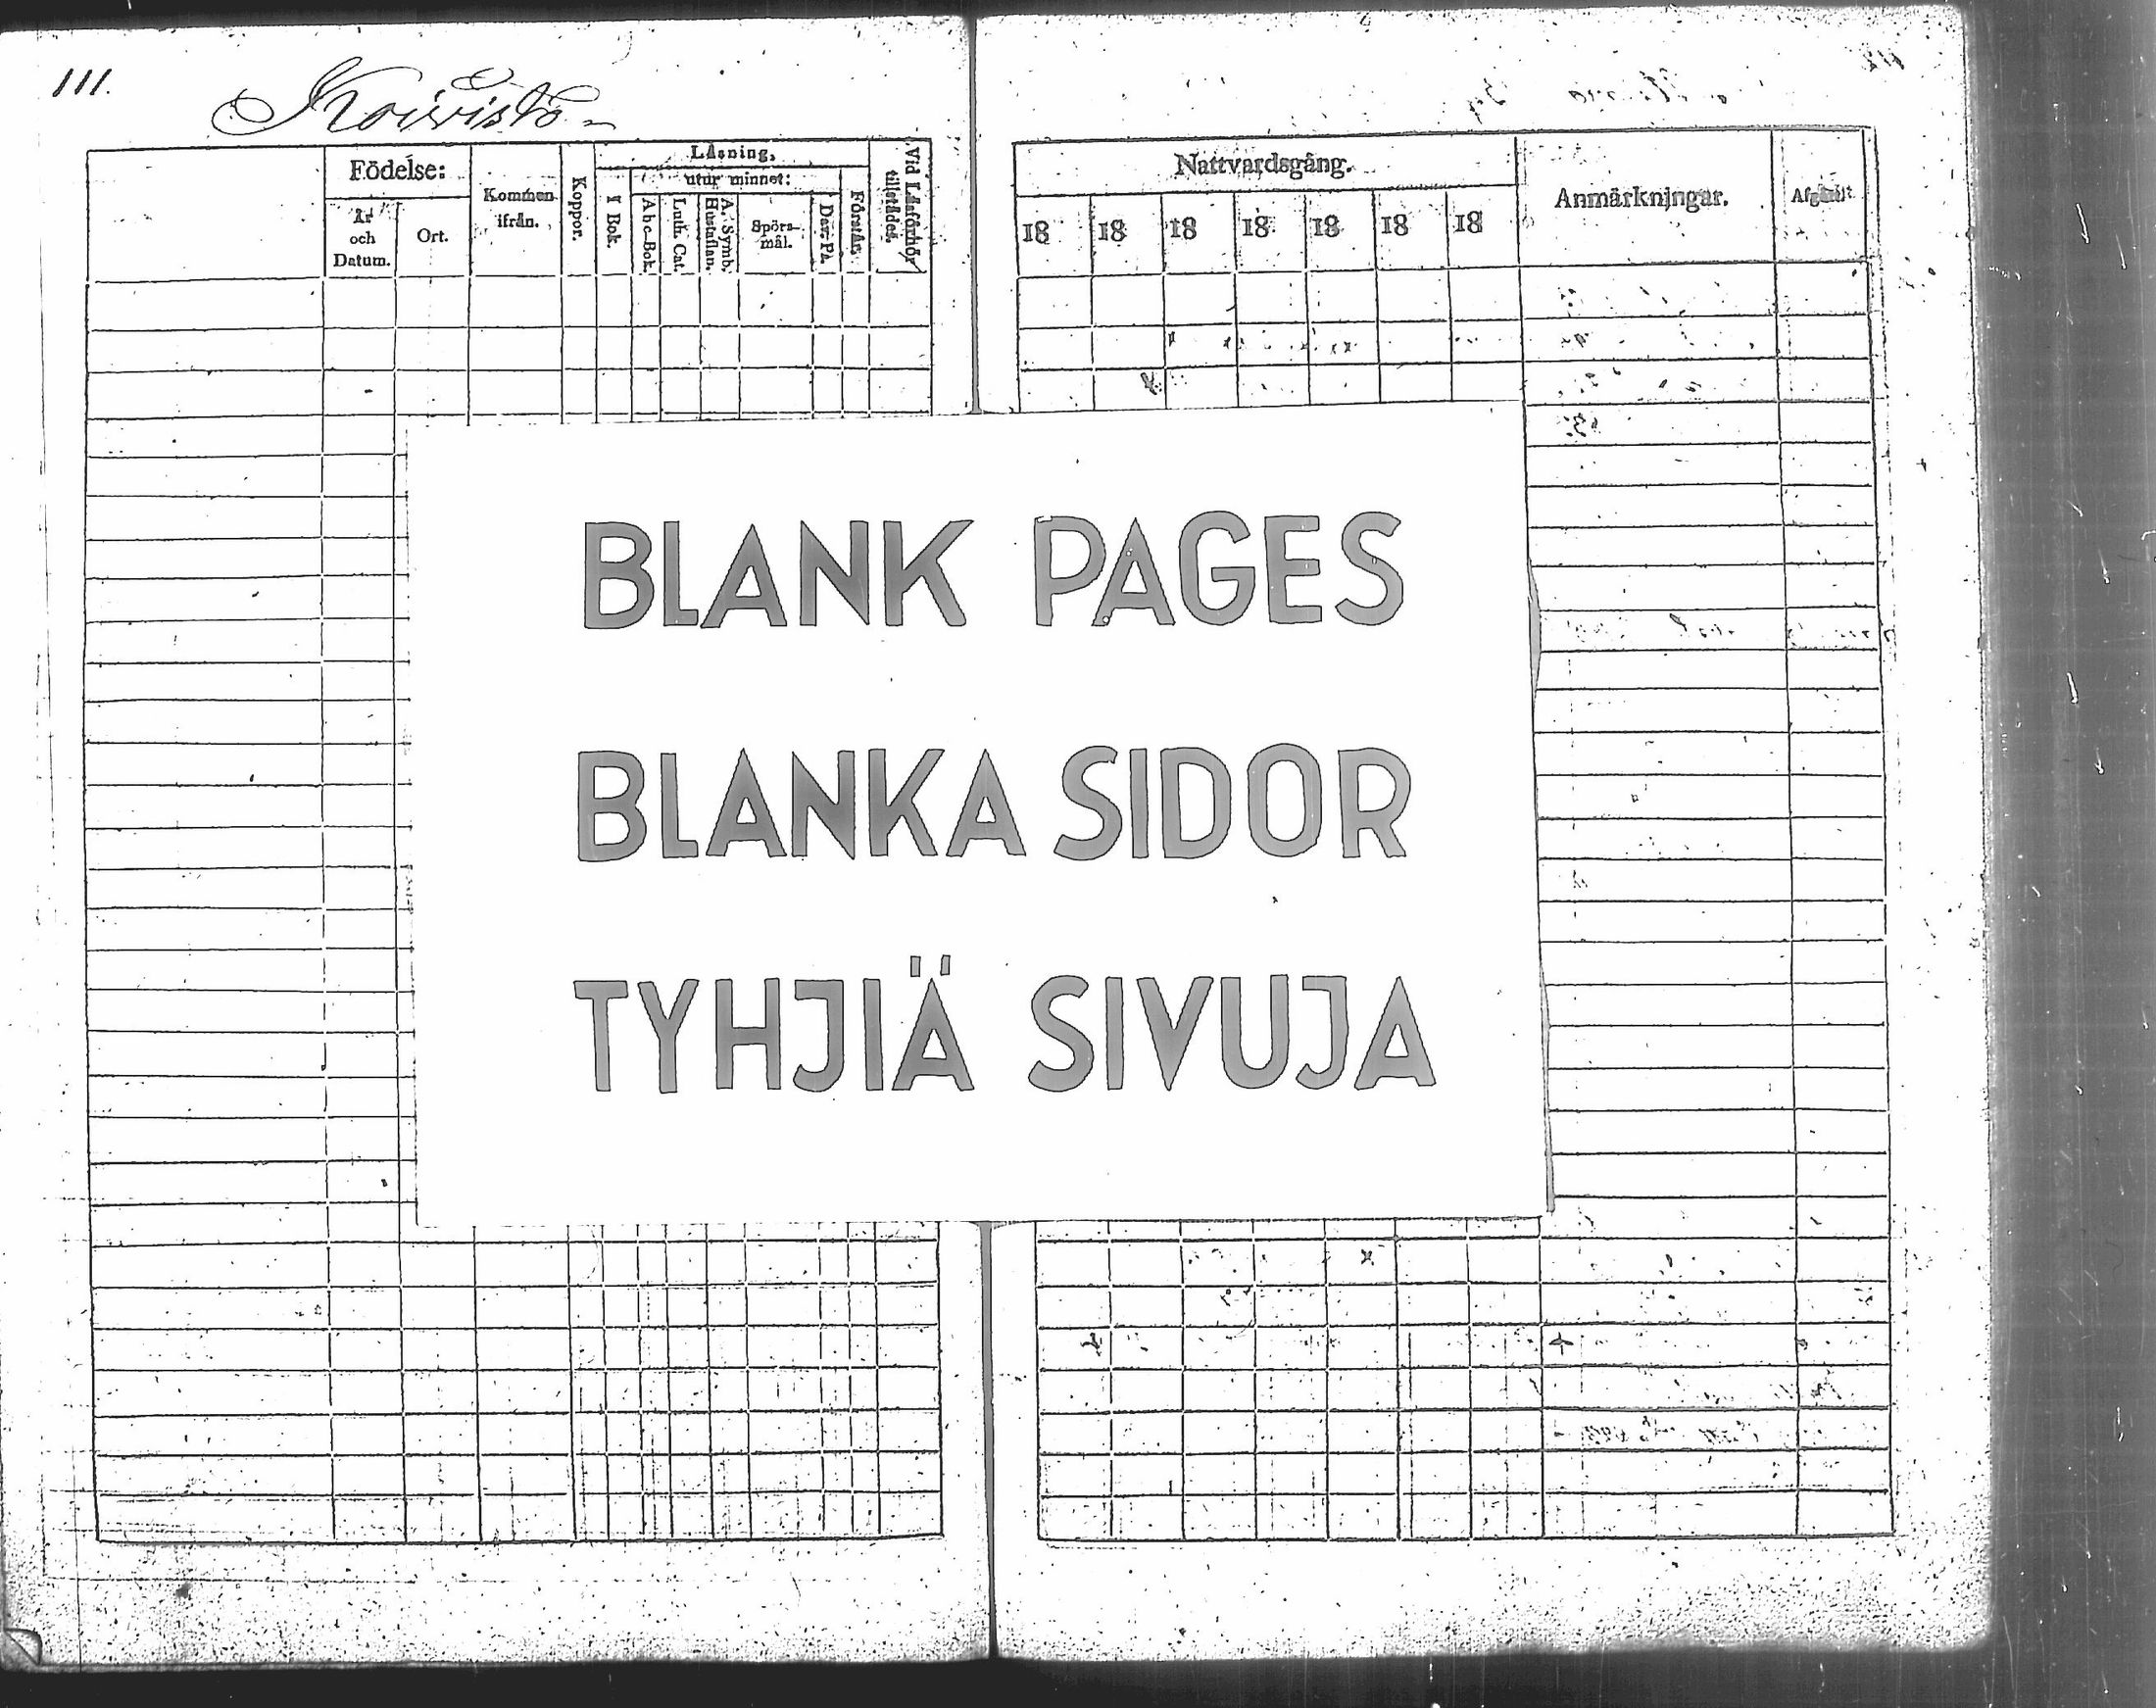 111.
Koivisto
Födelse:
År och Datum.
Ort.
Kommen ifrån.
Koppor.
Läsning,
I Bok.
utur minnet:
Abc-Bok.
Luth. Cat.
A. Symb. Hustaflan.
Spörs-mål.
Dav. Ps.
Förstår.
Vid Läsförhör tillstädes.
Nattvardsgång.
18 18 18 18 18 18 18
Anmärkningar.
BLANK PAGES
BLANKA SIDOR
TYHJIÄ SIVUJA